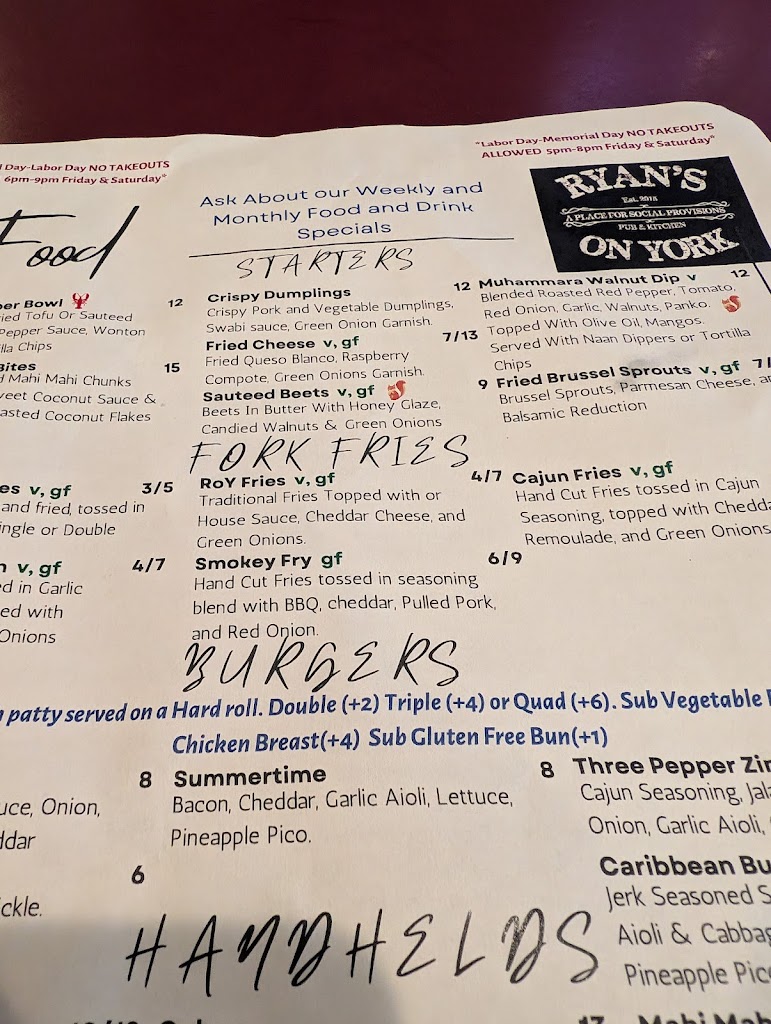 Day-Labor Day NO TAKEOUTS
6pm-9pm Friday & Saturday*
*Labor Day-Memorial Day NO TAKEOUTS
ALLOWED 5pm-8pm Friday & Saturday*
Ask About our Weekly and
Monthly Food and Drink
Specials
RYAN'S
Est. 2018
A PLACE FOR SOCIAL PROVISIONS
PUB & KITCHEN
ON YORK
Food
STARTERS
Bowl 12
Tofu Or Sauteed
Pepper Sauce, Wonton
Chips
Bites 15
Mahi Mahi Chunks
Coconut Sauce &
Coconut Flakes
Crispy Dumplings 12
Crispy Pork and Vegetable Dumplings,
Swabi sauce, Green Onion Garnish.
Fried Cheese v, gf 7/13
Fried Queso Blanco, Raspberry
Compote, Green Onions Garnish.
Sauteed Beets v, gf 9
Beets In Butter With Honey Glaze,
Candied Walnuts & Green Onions
Muhammara Walnut Dip v 12
Blended Roasted Red Pepper, Tomato,
Red Onion, Garlic, Walnuts, Panko.
Topped With Olive Oil, Mangos.
Served With Naan Dippers or Tortilla
Chips
Fried Brussel Sprouts v, gf 7/
Brussel Sprouts, Parmesan Cheese,
Balsamic Reduction
FORK FRIES
v, gf 3/5
and fried, tossed in
Single or Double
v, gf 4/7
in Garlic
with
Onions
RoY Fries v, gf 4/7
Traditional Fries Topped with or
House Sauce, Cheddar Cheese, and
Green Onions.
Smokey Fry gf 6/9
Hand Cut Fries tossed in seasoning
blend with BBQ, cheddar, Pulled Pork,
and Red Onion.
Cajun Fries v, gf
Hand Cut Fries tossed in Cajun
Seasoning, topped with
Remoulade, and Green Onions
BURGERS
patty served on a Hard roll. Double (+2) Triple (+4) or Quad (+6). Sub Vegetable
Chicken Breast(+4) Sub Gluten Free Bun(+1)
8
Onion,
6
Summertime 8
Bacon, Cheddar, Garlic Aioli, Lettuce,
Pineapple Pico.
Three Pepper
Cajun Seasoning,
Onion, Garlic Aioli,
Caribbean
Jerk Seasoned
Aioli &
Pineapple
HANDHELDS